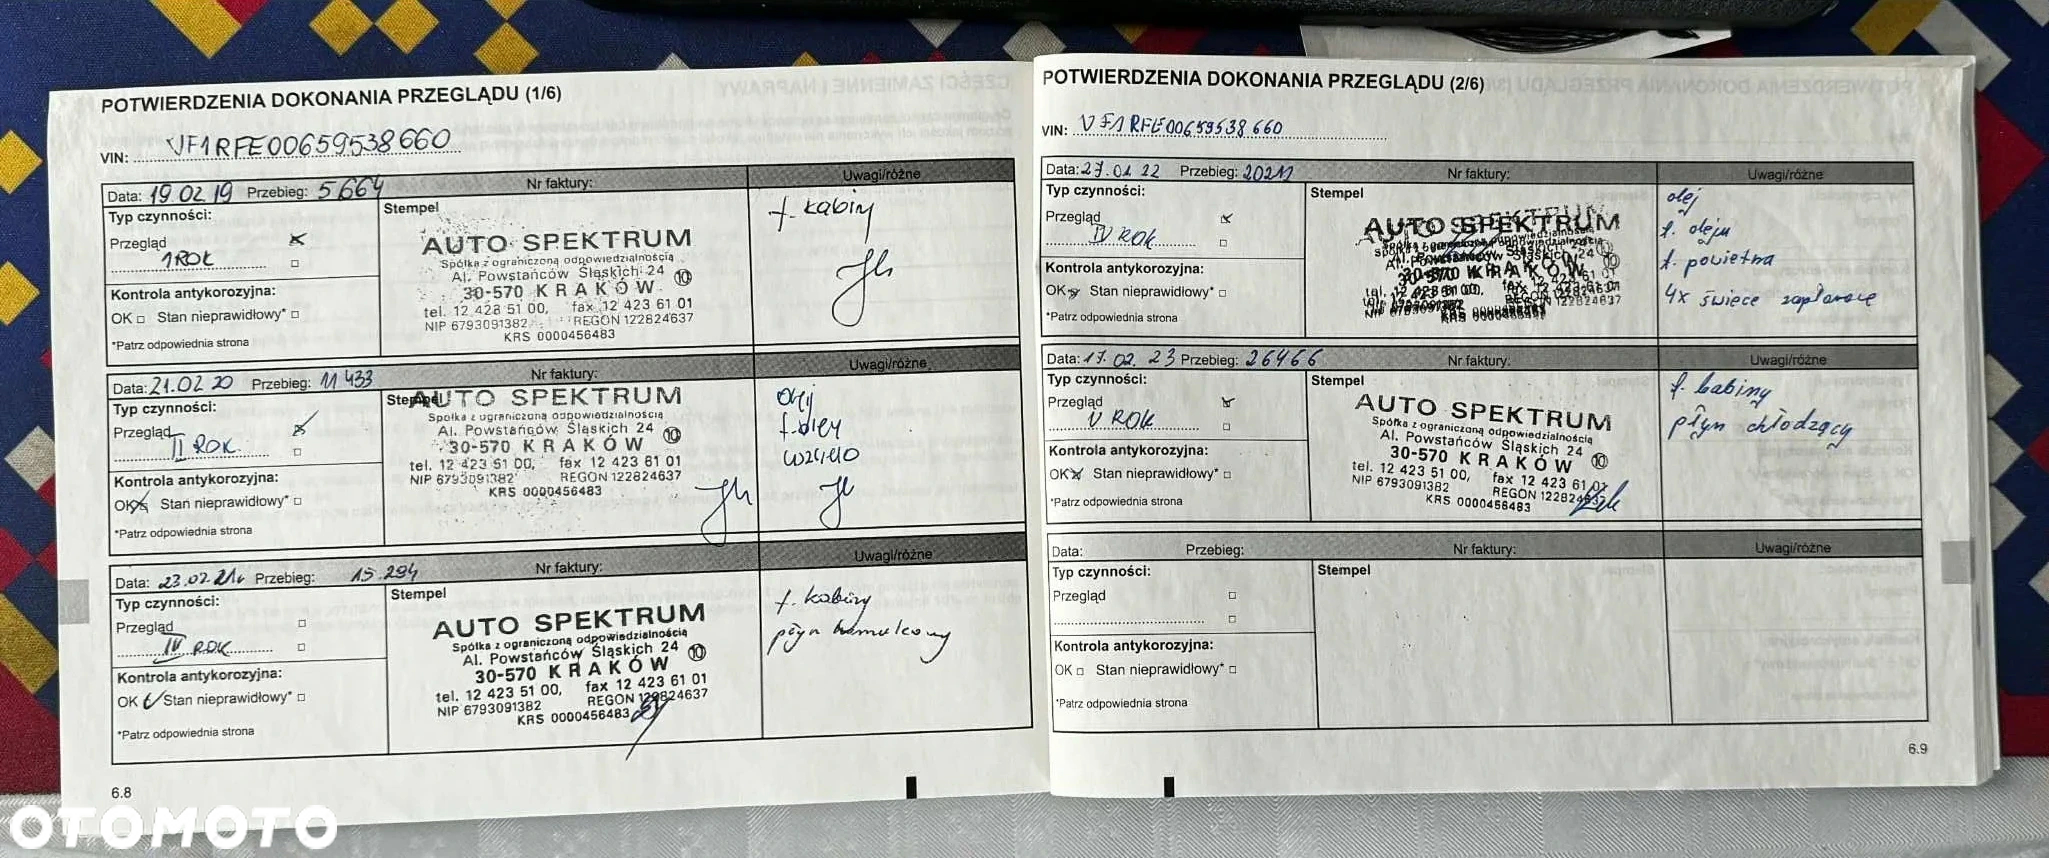 POTWIERDZENIA DOKONANIA PRZEGLĄDU (1/6)
VIN: VF1RFE00659538660
Data: 19.02.19 Przebieg: 5664 Nr faktury: Uwagi/różne
Typ czynności:
Przegląd
1 ROK
Kontrola antykorozyjna:
OK Stan nieprawidłowy*
*Patrz odpowiednia strona
Stempel
AUTO SPEKTRUM
Spółka z ograniczoną odpowiedzialnością
Al. Powstańców Śląskich 24
10
30-570 KRAKÓW
tel. 12 423 51 00, fax 12 423 61 01
NIP 6793091382 REGON 122824637
KRS 0000456483
f. kabiny
Data: 21.02 20 Przebieg: 11 433 Nr faktury: Uwagi/różne
Typ czynności:
Przegląd
II ROK
Kontrola antykorozyjna:
OK Stan nieprawidłowy*
*Patrz odpowiednia strona
Stempel
AUTO SPEKTRUM
Spółka z ograniczoną odpowiedzialnością
Al. Powstańców Śląskich 24
10
30-570 KRAKÓW
tel. 12 423 51 00, fax 12 423 61 01
NIP 6793091382 REGON 122824637
KRS 0000456483
olej
Data: 23.02.21 Przebieg: 15.294 Nr faktury: Uwagi/różne
Typ czynności:
Przegląd
ROK
Kontrola antykorozyjna:
OK Stan nieprawidłowy*
*Patrz odpowiednia strona
Stempel
AUTO SPEKTRUM
Spółka z ograniczoną odpowiedzialnością
Al. Powstańców Śląskich 24
10
30-570 KRAKÓW
tel. 12 423 51 00, fax 12 423 61 01
NIP 6793091382 REGON 122824637
KRS 0000456483
f. kabiny
płyn hamulcowy
6.8
POTWIERDZENIA DOKONANIA PRZEGLĄDU (2/6)
VIN: VF1RFE00659538660
Data: 27.01.22 Przebieg: 20211 Nr faktury: Uwagi/różne
Typ czynności:
Przegląd
IV ROK
Kontrola antykorozyjna:
OK Stan nieprawidłowy*
*Patrz odpowiednia strona
Stempel
AUTO SPEKTRUM
30-570 KRAKÓW
olej
f. oleju
f. powietrza
4x świece zapłonowe
Data: 17.02.23 Przebieg: 26466 Nr faktury: Uwagi/różne
Typ czynności:
Przegląd
V ROK
Kontrola antykorozyjna:
OK Stan nieprawidłowy*
*Patrz odpowiednia strona
Stempel
AUTO SPEKTRUM
Spółka z ograniczoną odpowiedzialnością
Al. Powstańców Śląskich 24
10
30-570 KRAKÓW
tel. 12 423 51 00, fax 12 423 61 01
NIP 6793091382 REGON 122824637
KRS 0000456483
f. kabiny
płyn chłodzący
Data: Przebieg: Nr faktury: Uwagi/różne
Typ czynności:
Przegląd
Kontrola antykorozyjna:
OK Stan nieprawidłowy*
*Patrz odpowiednia strona
Stempel
6.9
OTOMOTO